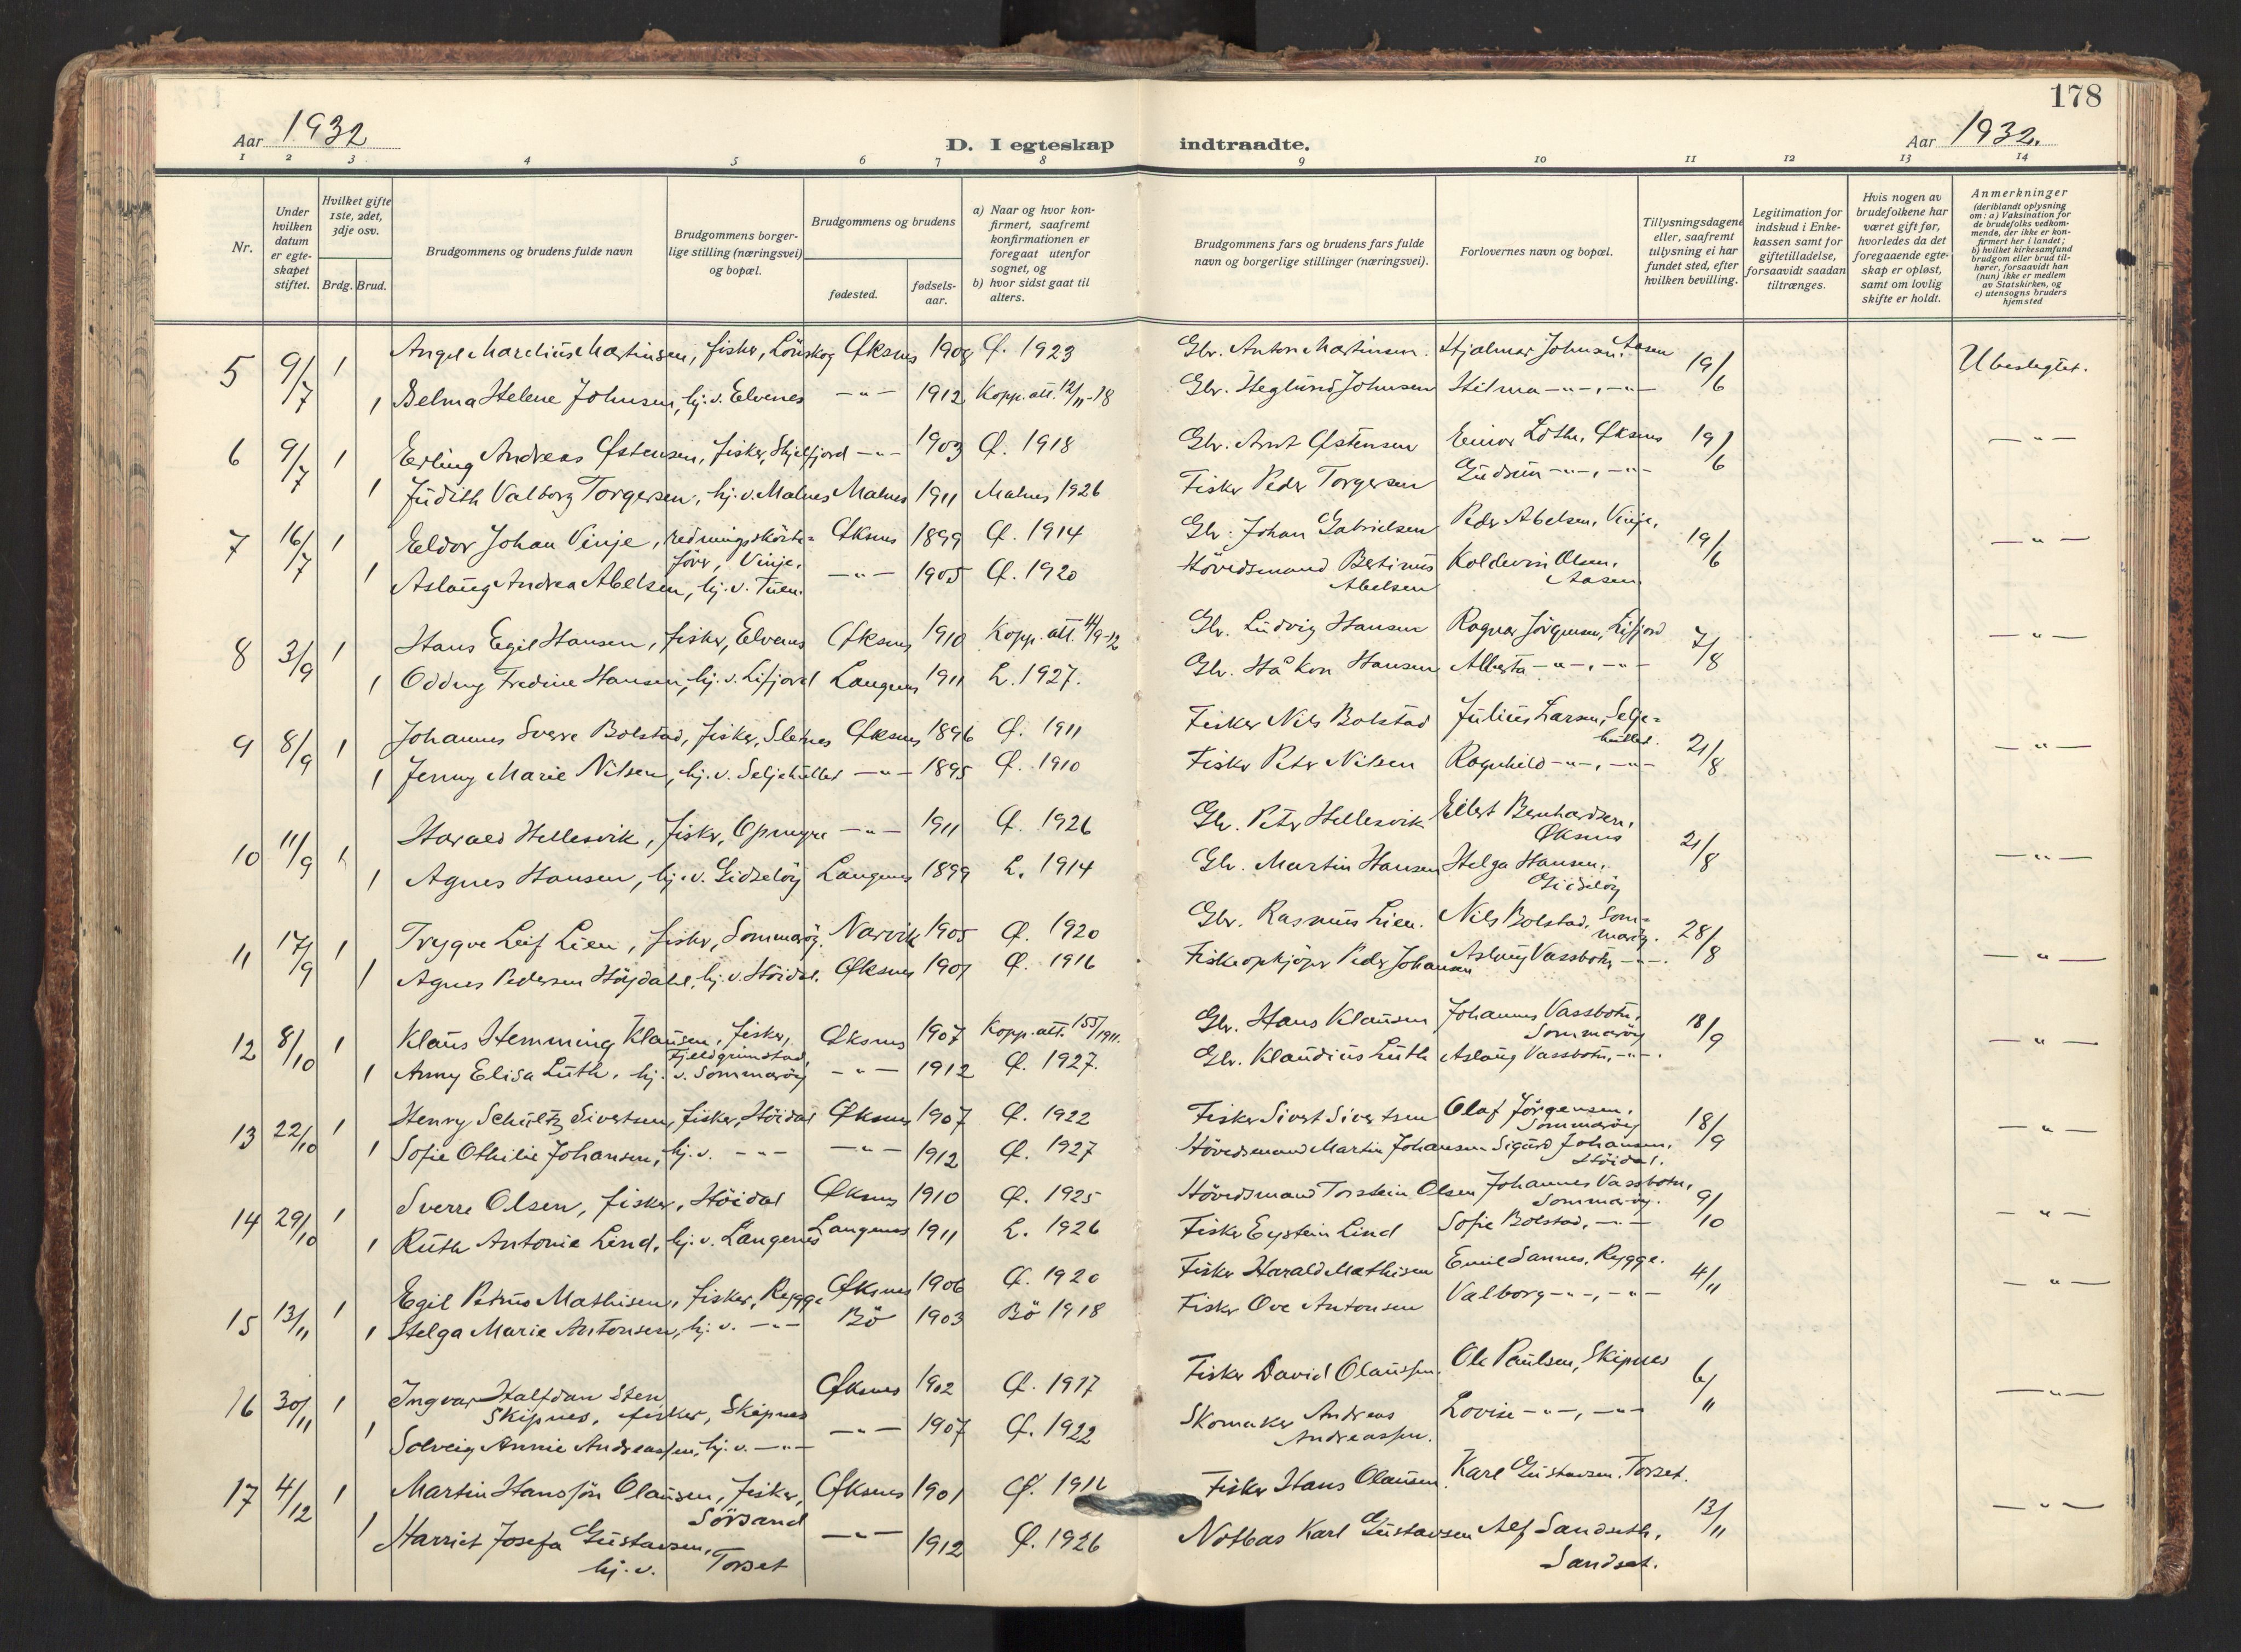 178
Aar 1932
D. I egteskap indtraadte.
Aar 1932.
1 2 3 4 5 6 7 8 9 10 11 12 13 14
Nr.
Under hvilken datum er egteskapet stiftet.
Hvilket gifte 1ste, 2det, 3dje osv.
Brdg. Brud.
Brudgommens og brudens fulde navn
Brudgommens borgerlige stilling (næringsvei) og bopæl.
Brudgommens og brudens
fødested.
fødselsaar.
a) Naar og hvor konfirmert, saafremt konfirmationen er foregaat utenfor sognet, og
b) hvor sidst gaat til alters.
Brudgommens fars og brudens fars fulde navn og borgerlige stillinger (næringsvei).
Forlovernes navn og bopæl.
Tillysningsdagene eller, saafremt tillysning ei har fundet sted, efter hvilken bevilling.
Legitimation for indskud i Enkekassen samt for giftetilladelse, forsaavidt saadan tiltrænges.
Hvis nogen av brudefolkene har været gift før, hvorledes da det foregaaende egteskap er opløst, samt om lovlig skifte er holdt.
Anmerkninger
(deriblandt oplysning om: a) Vaksination for de brudefolks vedkommende, der ikke er konfirmert her i landet; b) hvilket kirkesamfund brudgom eller brud tilhører, forsaavidt han (hun) ikke er medlem av Statskirken, og c) utensogns bruders hjemsted
5 9/7 1 Angel Marelius Martinsen, fisker, Lönskog Øksnes 1908 Ø. 1923 Gbr. Anton Martinsen. Hjalmar Johnsen, Aasen 19/6 Ubeslegtet.
1 Selma Helene Johnsen, hj. v. Elvenes -"- 1912 Kopp. att. 12/11-18 Gbr. Heglund Johnsen Hilma -"-, -"-
6 9/7 1 Erling Andreas Østensen, fisker, Skjelfjord -"- 1903 Ø. 1918 Gbr. Arnt Østensen Einar Loths, Øksnes 19/6 -"-
1 Judith Valborg Torgersen, hj. v. Malnes Malnes 1911 Malnes 1926 Fisker Peder Torgersen Gudrun -"-, -"-
7 16/7 1 Eldor Johan Vinje, redningsskörte= Øksnes 1899 Ø. 1914 Gbr. Johan Gabrielsen Peder Abelsen, Vinje. 19/6 -"-
förer, Vinje.
1 Aslaug Andrea Abelsen, hj. v. Tuen. -"- 1905 Ø. 1920 Hövedsmand Bertinus Abelsen Koldevin Olsen, Aasen
8 3/9 1 Hans Egil Hansen, fisker, Elvenes Øksnes 1910 Kopp. att. 14/9-12 Gbr. Ludvig Hansen Ragnar Jörgensen, Lifjord 7/8 -"-
1 Oddny Fredine Hansen, hj. v. Lifjord Langenes 1911 L. 1927. Gbr. Håkon Hansen Alberta -"-, -"-
9 8/9 1 Johannes Sverre Bolstad, fisker, Sletnes Øksnes 1896 Ø. 1911 Fisker Nils Bolstad Julius Larsen, Selje= hullet. 21/8 -"-
1 Jenny Marie Nilsen, hj. v. Seljehullet -"- 1895 Ø. 1910 Fisker Peter Nilsen Ragnhild -"-, -"-
10 11/9 1 Harald Hellesvik, fisker, Opmyre -"- 1911 Ø. 1926 Gbr. Peter Hellesvik Eilert Bernhardsen, Øksnes 21/8 -"-
1 Agnes Hansen, hj. v. Gidselöy Langenes 1899 L. 1914 Gbr. Martin Hansen Helga Hansen, Gidselöy
11 17/9 1 Trygve Leif Lien, fisker, Sommaröy. Narvik 1905 Ø. 1920 Gbr. Rasmus Lien. Nils Bolstad, Som= maröy. 28/8 -"-
1 Agnes Pedersen Höydahl, hj. v. Höidal. Øksnes 1901 Ø. 1916 Fiskeopkjöper Peder Johansen Aslaug Vassbotn -"-.
12 8/10 1 Klaus Hemming Klausen, fisker, Fjeldgrimstad, Øksnes 1907 Kopp. att. 155/1911. Gbr. Hans Klausen Johannes Vassbotn, Sommaröy 18/9 -"-
1 Anny Elisa Luth, hj. v. Sommaröy -"- 1912 Ø. 1927. Gbr. Klaudius Luth Aslaug Vassbotn, -"-.
13 22/10 1 Henry Schultz Sivertsen, fisker, Höidal Øksnes 1907 Ø. 1922 Fisker Sivert Sivertsen Olaf Jörgensen, Sommaröy 18/9 -"-
1 Sofie Othilie Johansen, hj. v. -"- -"- 1912 Ø. 1927 Hövedsmand Martin Johansen Sigurd Johansen, Höidal.
14 29/10 1 Sverre Olsen, fisker, Höidal Øksnes 1910 Ø. 1925 Hövedsmand Torstein Olsen Johannes Vassbotn, Sommaröy. 9/10 -"-
1 Ruth Antonie Lind, hj. v. Langenes Langenes 1911 L. 1926 Fisker Eystein Lind Sofie Bolstad, -"-
15 13/11 1 Egil Petrus Mathisen, fisker, Rygge Øksnes 1906 Ø. 1920 Fisker Harald Mathisen Emil Sannes, Rygge. 4/11 -"-
1 Helga Marie Antonsen, hj. v. -"- Bö 1903 Bö 1918 Fisker Ove Antonsen Valborg -"-, -"-
16 30/11 1 Ingvar Halfdan Sten Skipnes, fisker, Skipnes Øksnes 1902 Ø. 1917 Fisker David Olaussen. Ole Paulsen, Skipnes 6/11 -"-
1 Solveig Annie Andreassen, hj. v. -"- -"- 1907 Ø. 1922 Skomaker Andreas Andreassen. Lovise -"-, -"-
17 4/12 1 Martin Hans Jön Olausen, fisker, Sörsand Øksnes 1901 Ø. 1916 Fisker Hans Olausen. Karl Gustavsen, Torset. 13/11 -"-
1 Harriet Josefa Gustavsen, hj. v. Torset -"- 1912 Ø. 1926 Notbas Karl Gustavsen Alf Sandseth, Sandset.